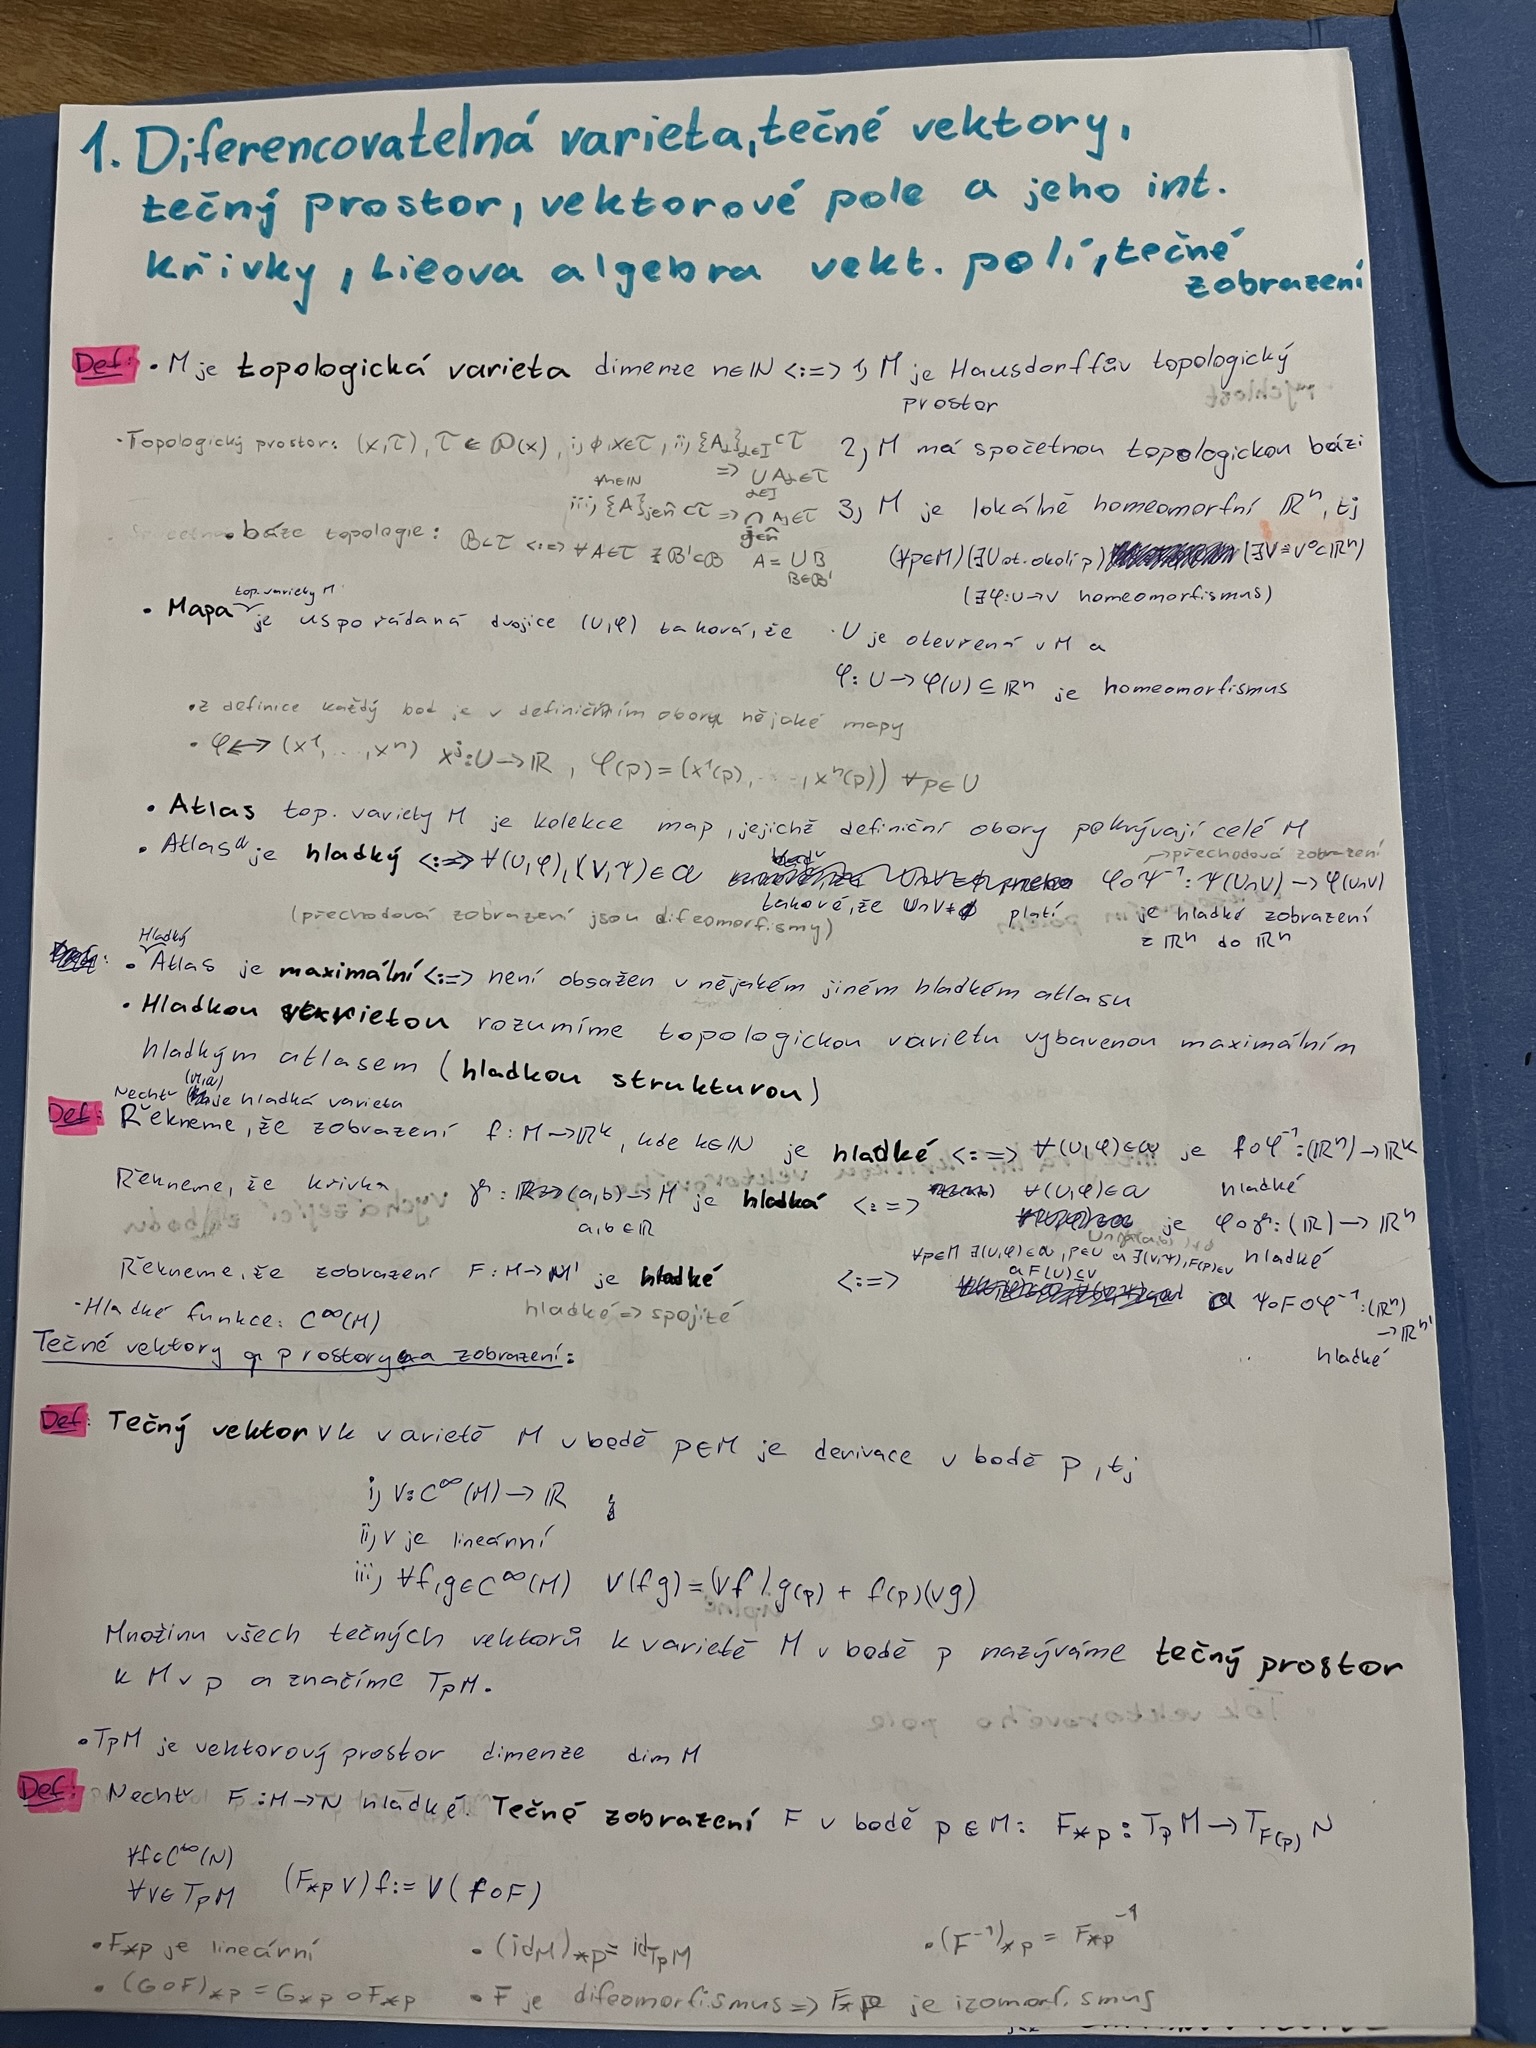 1. Diferencovatelná varieta, tečné vektory,
tečný prostor, vektorové pole a jeho int.
křivky, Lieova algebra vekt. polí, tečné
zobrazení
Def: • M je topologická varieta dimenze n∈ℕ <:=> 1) M je Hausdorffův topologický
prostor
• Topologický prostor: (x,τ), τ ⊂ P(x), i) ∅,x∈τ, ii) {A_α}_{α∈I} ⊂ τ
=> ∪_{α∈I} A_α∈τ
2) M má spočetnou topologickou bázi
∀n∈ℕ
iii) {A}_{j∈n̂} ⊂τ => ∩_{j∈n̂} A_j∈τ
3) M je lokálně homeomorfní ℝⁿ, tj
• báze topologie: B⊂τ <:=> ∀A∈τ ∃B'⊂B A = ∪_{B∈B'} B
(∀p∈M)(∃U ot. okolí p) (∃V=V°⊂ℝⁿ)
(∃φ:U→V homeomorfismus)
• Mapa top. variety M je uspořádaná dvojice (U,φ) taková, že • U je otevřená v M a
φ: U → φ(U) ⊆ ℝⁿ je homeomorfismus
• z definice každý bod je v definičním oboru nějaké mapy
• φ <-> (x¹, ..., xⁿ) xʲ:U→ℝ, φ(p)=(x¹(p), ..., xⁿ(p)) ∀p∈U
• Atlas top. variety M je kolekce map, jejichž definiční obory pokrývají celé M
přechodová zobrazení
• Atlas a je hladký <:=> ∀(U,φ),(V,ψ)∈a takové, že U∩V≠∅ platí φ∘ψ⁻¹: ψ(U∩V)→φ(U∩V)
(přechodová zobrazení jsou difeomorfismy)
je hladké zobrazení
z ℝⁿ do ℝⁿ
• Hladký Atlas je maximální <:=> není obsažen v nějakém jiném hladkém atlasu
• Hladkou varietou rozumíme topologickou varietu vybavenou maximálním
hladkým atlasem (hladkou strukturou)
Nechť (M,a) je hladká varieta
Def: Řekneme, že zobrazení f: M→ℝᵏ, kde k∈ℕ je hladké <:=> ∀(U,φ)∈a je f∘φ⁻¹:(ℝⁿ)→ℝᵏ
hladké
Řekneme, že křivka γ: (a,b)→M je hladká <:=> ∀(U,φ)∈a
a,b∈ℝ
je φ∘γ: (ℝ)→ℝⁿ
hladké
Řekneme, že zobrazení F: M→M' je hladké <:=> ∀p∈M ∃(U,φ)∈a, p∈U a ∃(V,ψ), F(p)∈V
a F(U)⊆V
a ψ∘F∘φ⁻¹:(ℝⁿ)
→ℝⁿ'
hladké
hladké => spojité
• Hladké funkce: C^∞(M)
Tečné vektory a prostory a zobrazení:
Def: Tečný vektor v k varietě M v bodě p∈M je derivace v bodě p, tj
i) v: C^∞(M)→ℝ
ii) v je lineární
iii) ∀f,g∈C^∞(M) v(fg)=(vf).g(p) + f(p)(vg)
Množinu všech tečných vektorů k varietě M v bodě p nazýváme tečný prostor
k M v p a značíme TpM.
• TpM je vektorový prostor dimenze dim M
Def: Nechť F:M→N hladké. Tečné zobrazení F v bodě p∈M: F_{*p}: T_pM→T_{F(p)}N
∀f∈C^∞(N)
∀v∈TpM (F_{*p}v)f:= v(f∘F)
• F_{*p} je lineární • (id_M)_{*p}=id_{TpM} • (F⁻¹)_{*p} = F_{*p}⁻¹
• (G∘F)_{*p} = G_{*p}∘F_{*p} • F je difeomorfismus => F_{*p} je izomorfismus